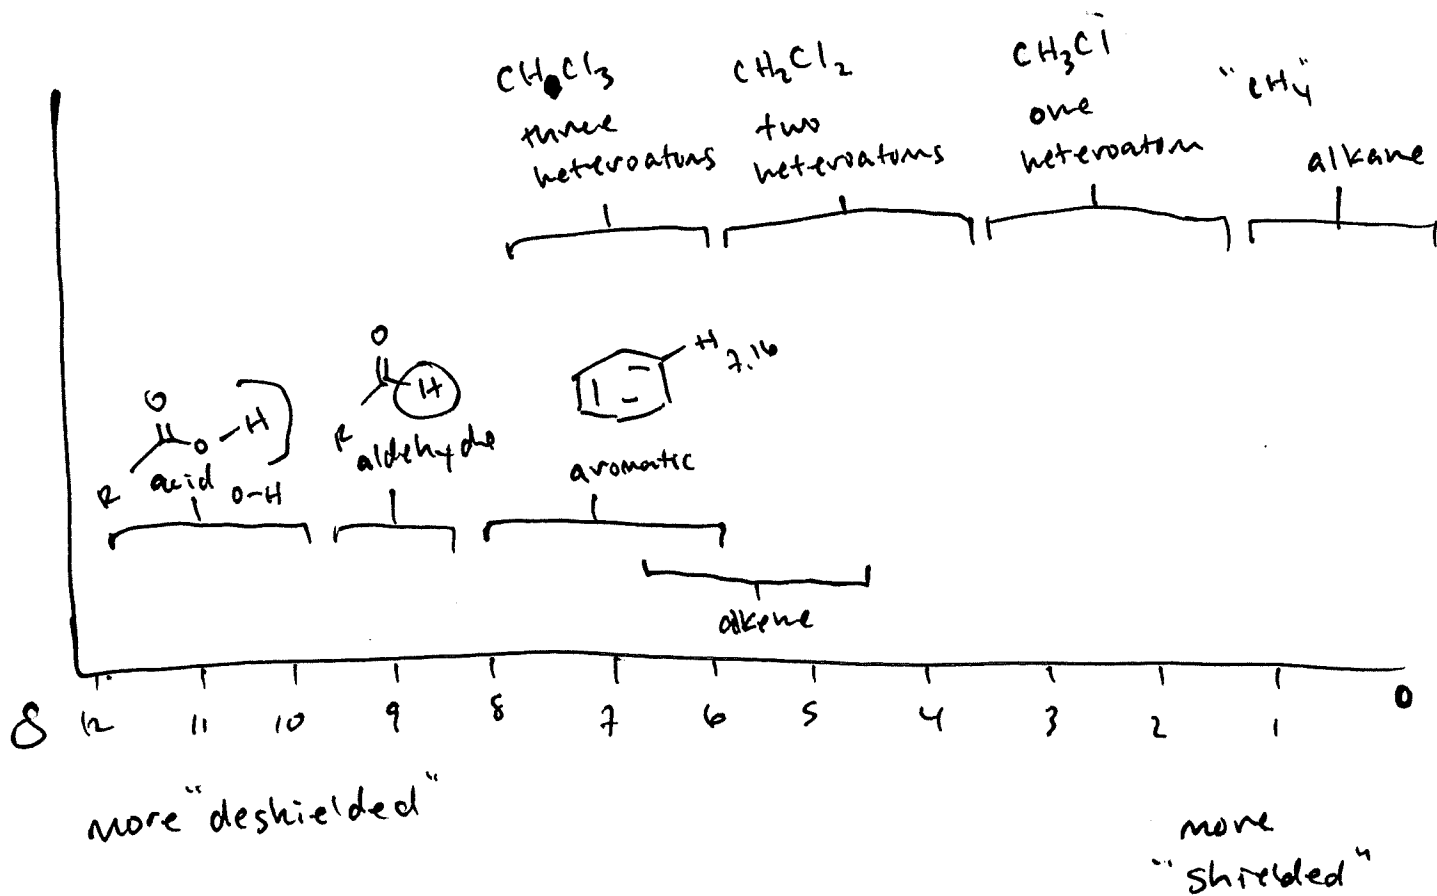 CHCl3
three
heteroatoms
CH2Cl2
two
heteroatoms
CH3Cl
one
heteroatom
"CH4"
alkane
O
R
O-H
acid
O-H
O
H
R
aldehyde
H
7.16
aromatic
alkene
δ 12 11 10 9 8 7 6 5 4 3 2 1 0
more "deshielded"
more
"shielded"